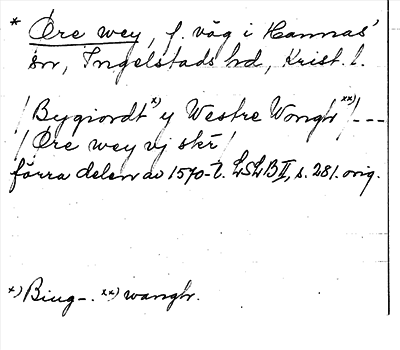 * Øre wey, f. väg i Hannas'
sn, Ingelstads hd, Krist. l.
/Bygiordt*) y Westre Wongh**)/---
/Øre wey vj skr/
förra delen av 1570-t. LSLB II, s. 281. orig.
*) Biug-. **) wangh.